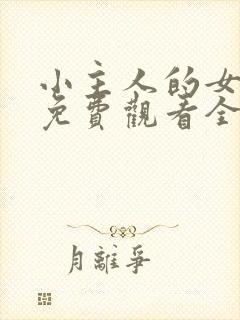 小主人的女
免費觀看全
月離爭